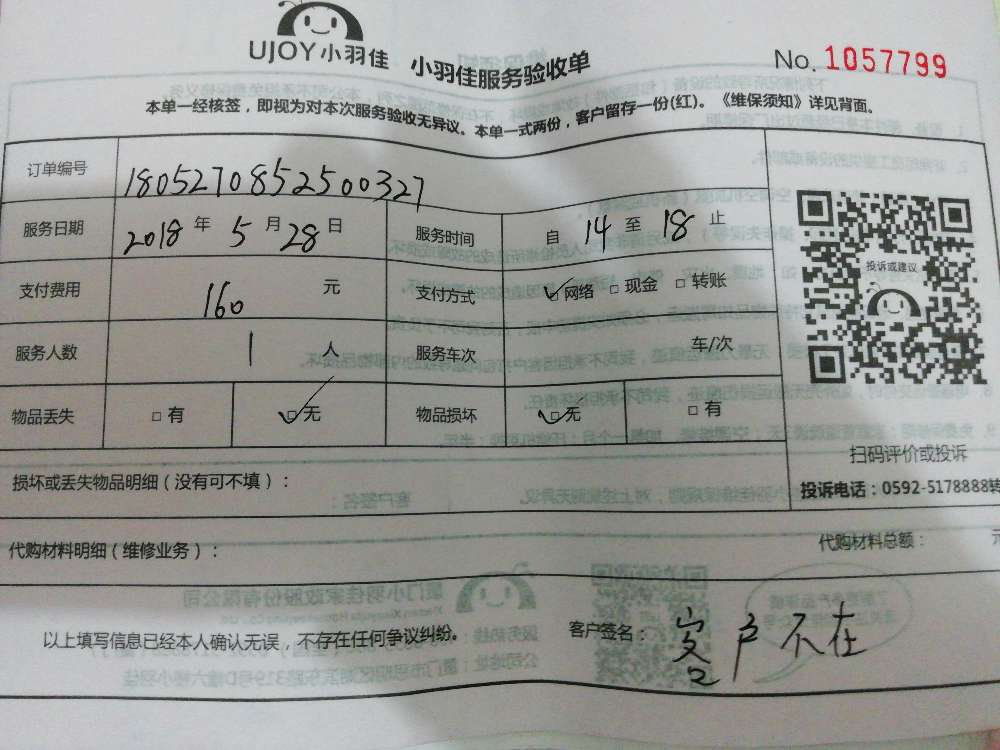 UJOY小羽佳 小羽佳服务验收单 No. 1057799
本单一经核签，即视为对本次服务验收无异议。本单一式两份，客户留存一份(红)。《维保须知》详见背面。
订单编号 1805270852500327
服务日期 2018 年 5 月 28 日 服务时间 自 14 至 18 止
投诉或建议
支付费用 160 元 支付方式 ☑网络 □现金 □转账
服务人数 1 人 服务车次 车/次
物品丢失 □有 ☑无 物品损坏 ☑无 □有
扫码评价或投诉
损坏或丢失物品明细（没有可不填）： 投诉电话：0592-5178888转
代购材料明细（维修业务）： 代购材料总额： 元
以上填写信息已经本人确认无误，不存在任何争议纠纷。 客户签名： 客户不在